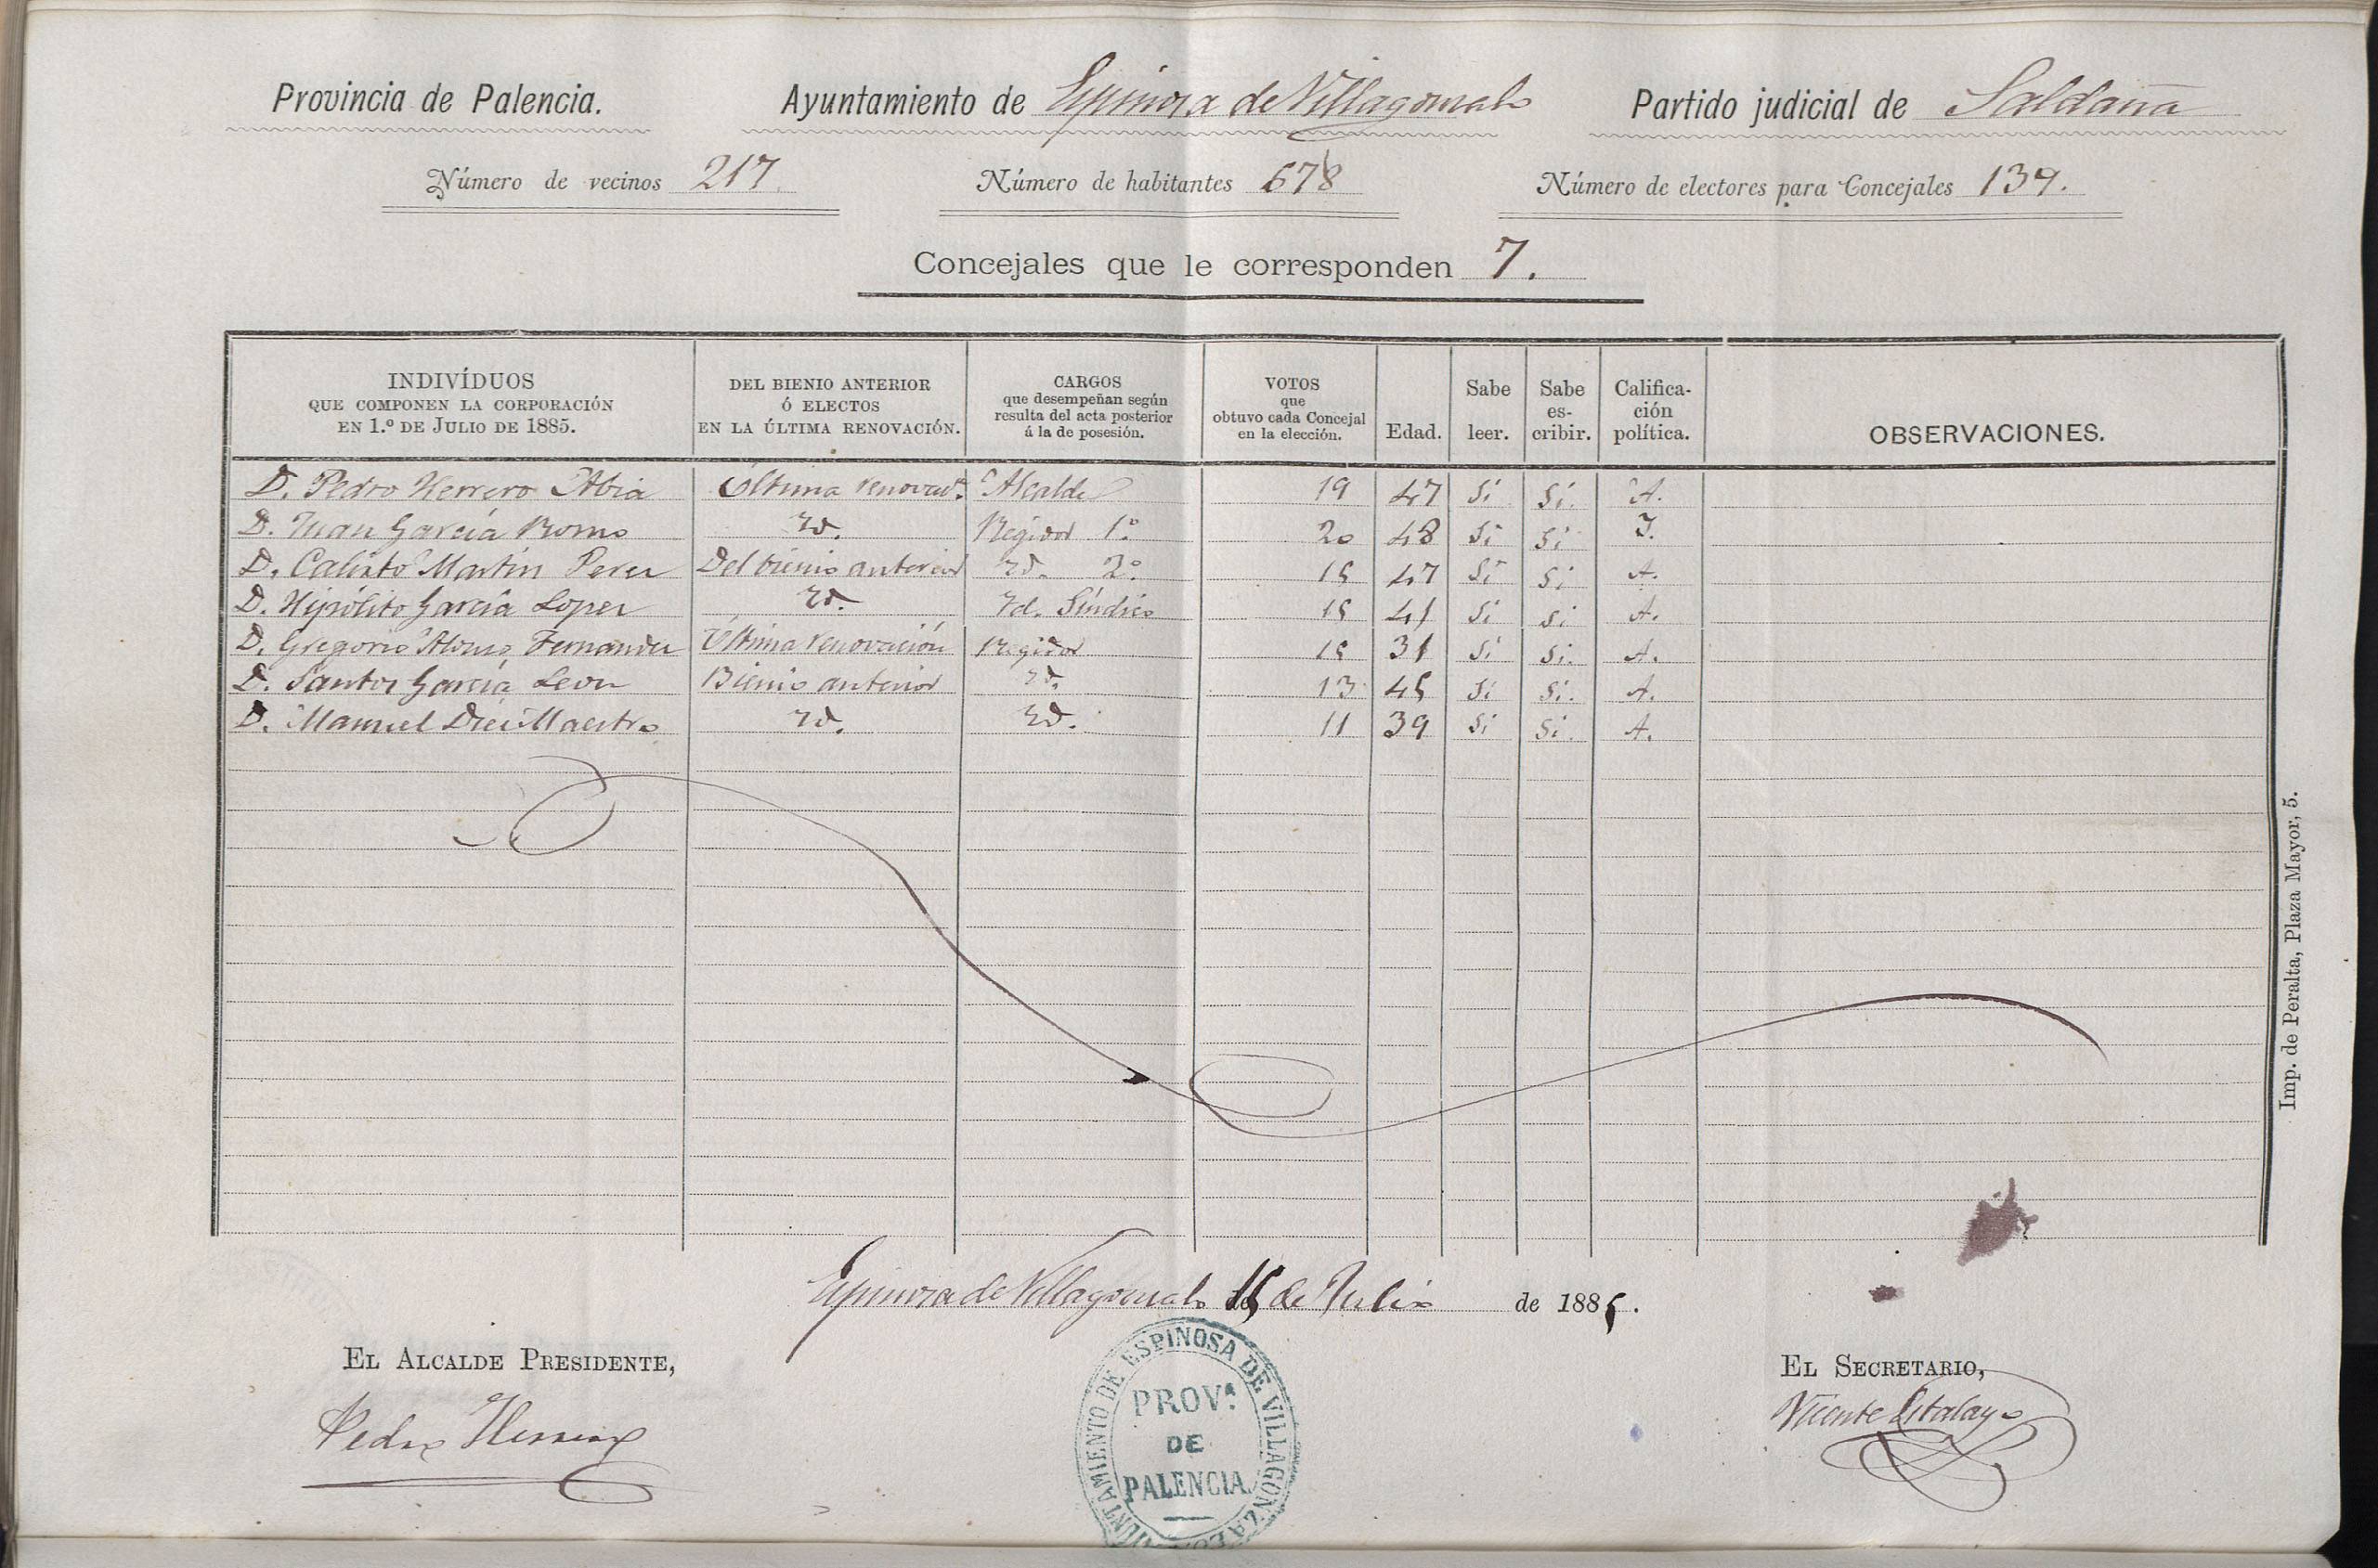 Provincia de Palencia. Ayuntamiento de Espinosa de Villagonzalo Partido judicial de Saldaña
Número de vecinos 217. Número de habitantes 678 Número de electores para Concejales 139.
Concejales que le corresponden 7.
INDIVÍDUOS QUE COMPONEN LA CORPORACIÓN EN 1.º DE JULIO DE 1885. DEL BIENIO ANTERIOR Ó ELECTOS EN LA ÚLTIMA RENOVACIÓN. CARGOS que desempeñan según resulta del acta posterior á la de posesión. VOTOS que obtuvo cada Concejal en la elección. Edad. Sabe leer. Sabe es-cribir. Califica-ción política. OBSERVACIONES.
D. Pedro Herrero Abia Última renovac.ⁿ Alcalde 19 47 Si Si. A.
D. Juan García Romo Id. Regidor 1.º 20 48 Si Si I.
D. Calixto Martin Perez Del bienio anterior Id. 2.º 15 47 Si Si A.
D. Hipólito García Lopez Id. Id. Síndico 15 41 Si Si A.
D. Gregorio Alonso Fernandez Última renovación Regidor 15 31 Si Si. A.
D. Santos García Leon Bienio anterior Id. 13 45 Si Si. A.
D. Manuel Diez Maestro Id. Id. 11 39 Si Si. A.
Imp. de Peralta, Plaza Mayor, 5.
Espinosa de Villagonzalo 15 de Julio de 1885.
EL ALCALDE PRESIDENTE, EL SECRETARIO,
Pedro Herrero Vicente
AYUNTAMIENTO DE ESPINOSA DE VILLAGONZALO
PROV.ª
DE
PALENCIA.